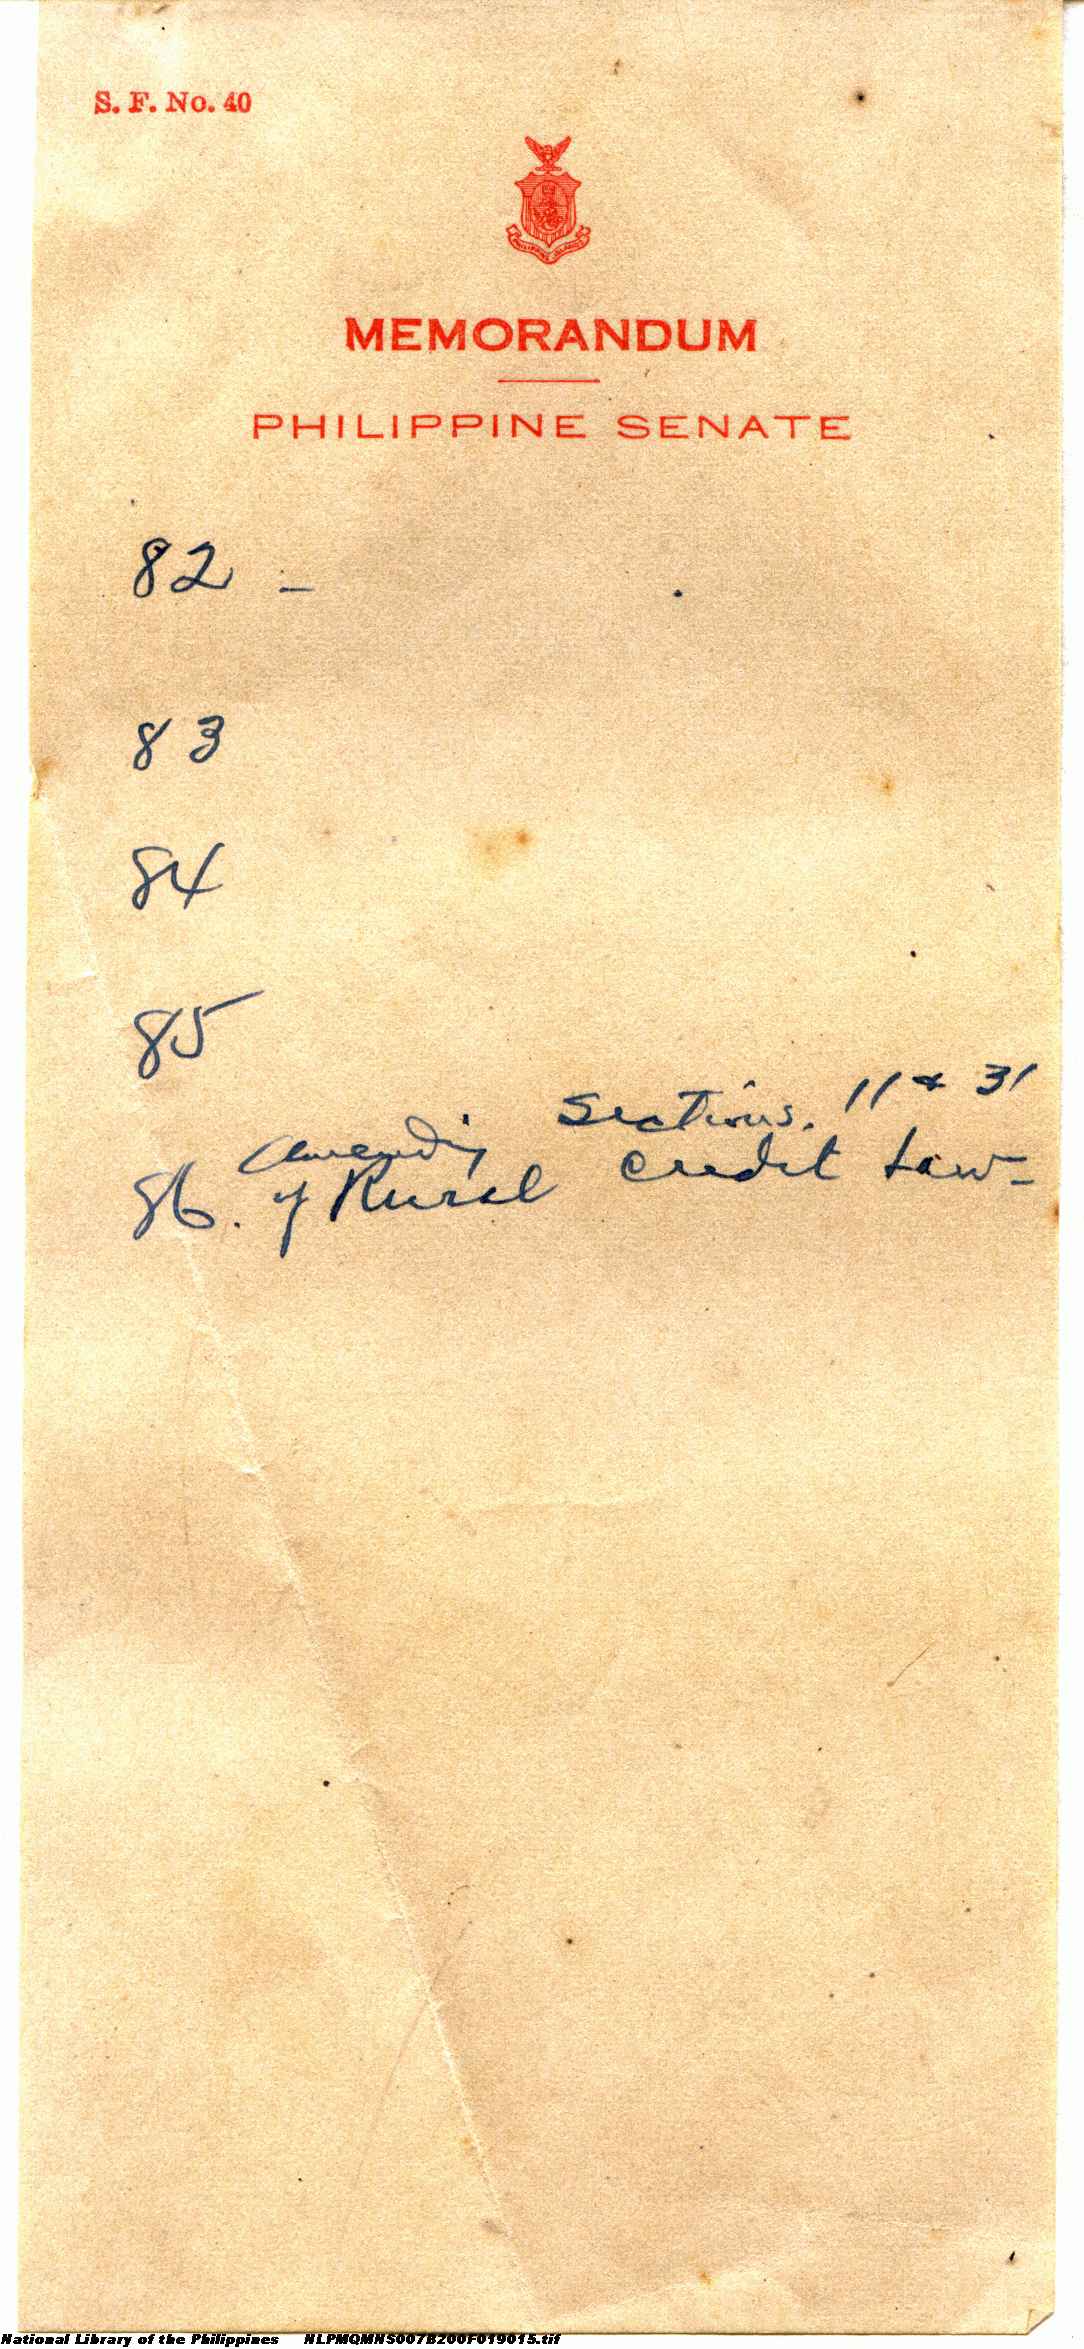 S. F. No. 40
PHILIPPINE ISLANDS
MEMORANDUM
PHILIPPINE SENATE
82 –
83
84
85
amending Sections. 11 & 31
86. of Rural Credit Law –
National Library of the Philippines NLPMQMNS007B200F019015.tif